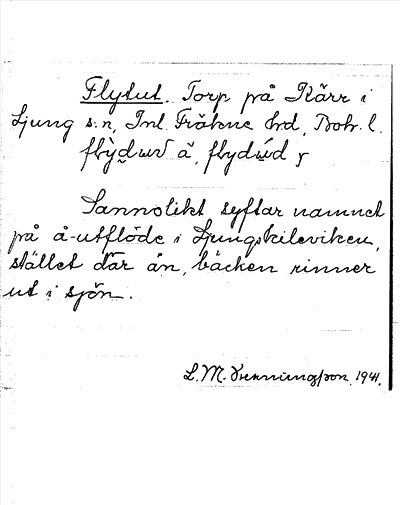 Flytut. Torp på Kärr i
Ljung s:n, Inl. Fräkne hrd, Boh. l.
Sannolikt syftar namnet
på å-utflöde i Ljungskileviken,
stället där ån, bäcken rinner
ut i sjön.
L. M. 1941.